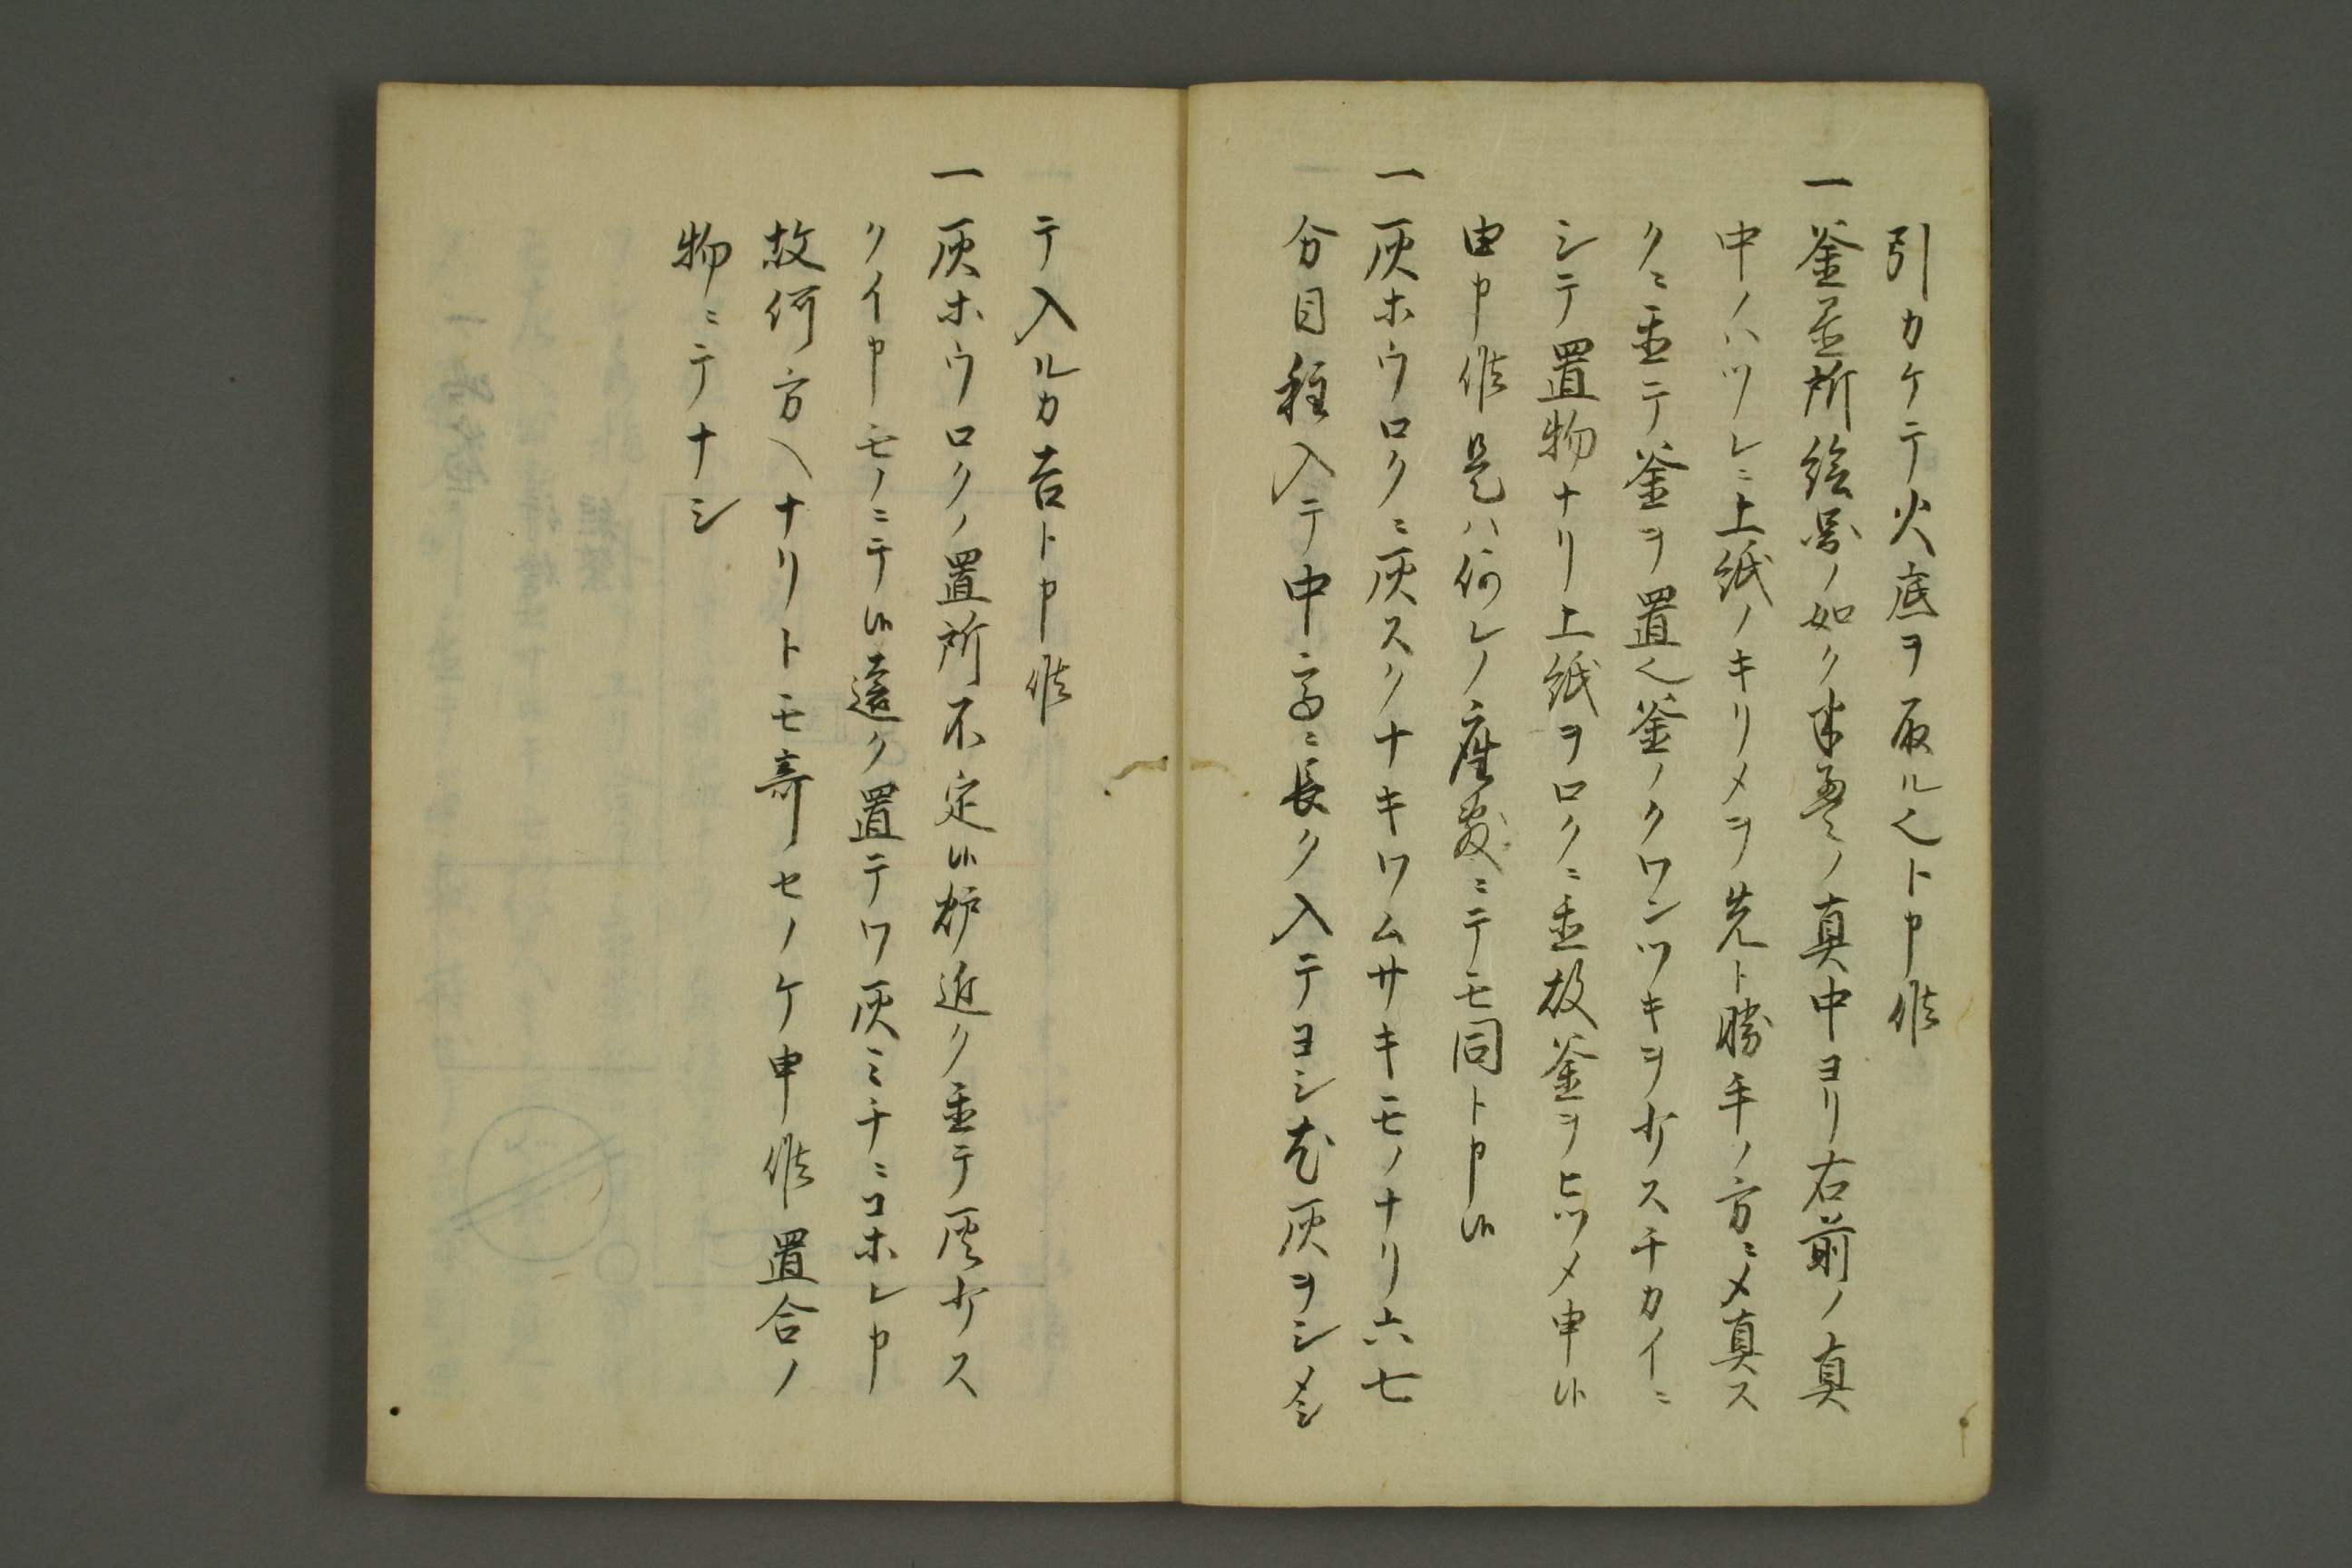 引カケテ火底ヲ取ル也ト申候
一釜置所絵図ノ如ク半畳ノ真中ヨリ右前ノ真
中ノハツレニ上紙ノキリメヲ先ト勝手ノ方ニメ真ス
クニ置テ釜ヲ置也釜ノクワンツキヲ少スチカイニ
シテ置物ナリ上紙ヲロクニ置故釜ヲヒツメ申候
由申候是ハ何レノ座敷ニテモ同ト申候
一灰ホウロクニ灰スクナキワムサキモノナリ六七
分目程入テ中高ニ長ク入テヨシ尤灰ヲシメシ
テ入ルカ吉ト申候
一灰ホウロクノ置所不定候炉近ク置テ灰少ス
クイ申モノニテ候遠ク置テワ灰ミチニコホレ申
故何方ヘナリトモ寄セノケ申候置合ノ
物ニテナシ